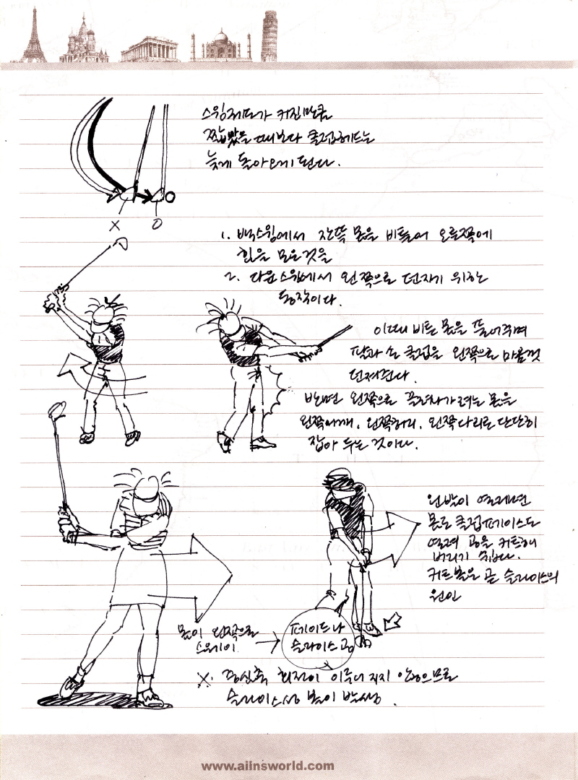 스윙궤도가 커진만큼
짧았을 때보다 클럽헤드는
늦게 돌아오게 된다.
X O
1. 백스윙에서 잔뜩 몸을 비틀어 오른쪽에
힘을 모은것을
2. 다운스윙에서 왼쪽으로 던지기 위한
동작이다.
이때 비튼 몸을 풀어주며
팔과 손 클럽을 왼쪽으로 마음껏
던져준다.
반면 왼쪽으로 끌려나가려는 몸을
왼쪽어깨, 왼쪽허리, 왼쪽다리로 단단히
잡아 두는 것이다.
왼발이 열리면
몸도 클럽페이스도
열려 공을 커트해
버리기 쉽다.
커트볼은 곧 슬라이스의
원인
몸이 왼쪽으로
스웨이
페이드나
슬라이스 공
X. 중심축 회전이 이루어지지 않으므로
슬라이스성 볼이 발생.
www.ailnsworld.com